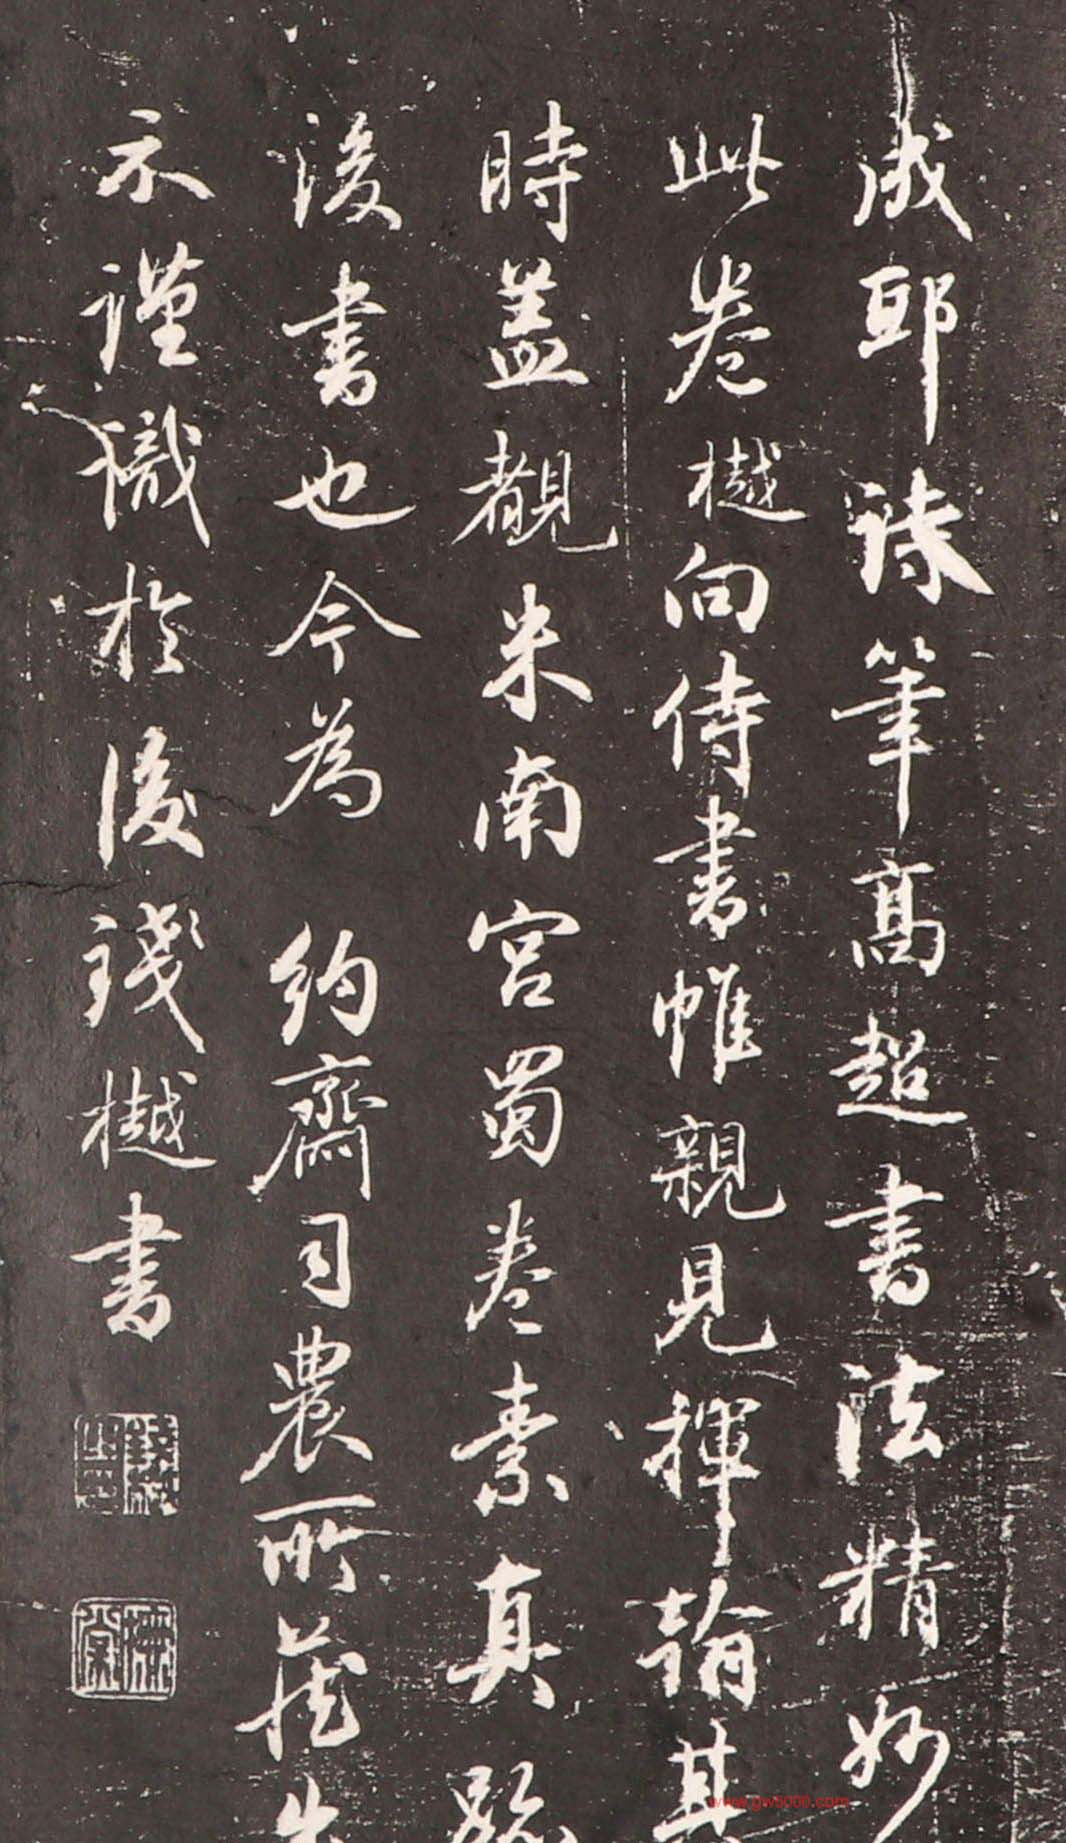 成邸詩筆高超書法精妙
此卷樾向侍書帷親見揮翰其
時蓋覩米南宮蜀卷素真跡
後書也今為 約齋司農所藏出
示謹識於後錢樾書
www.gw5000.com